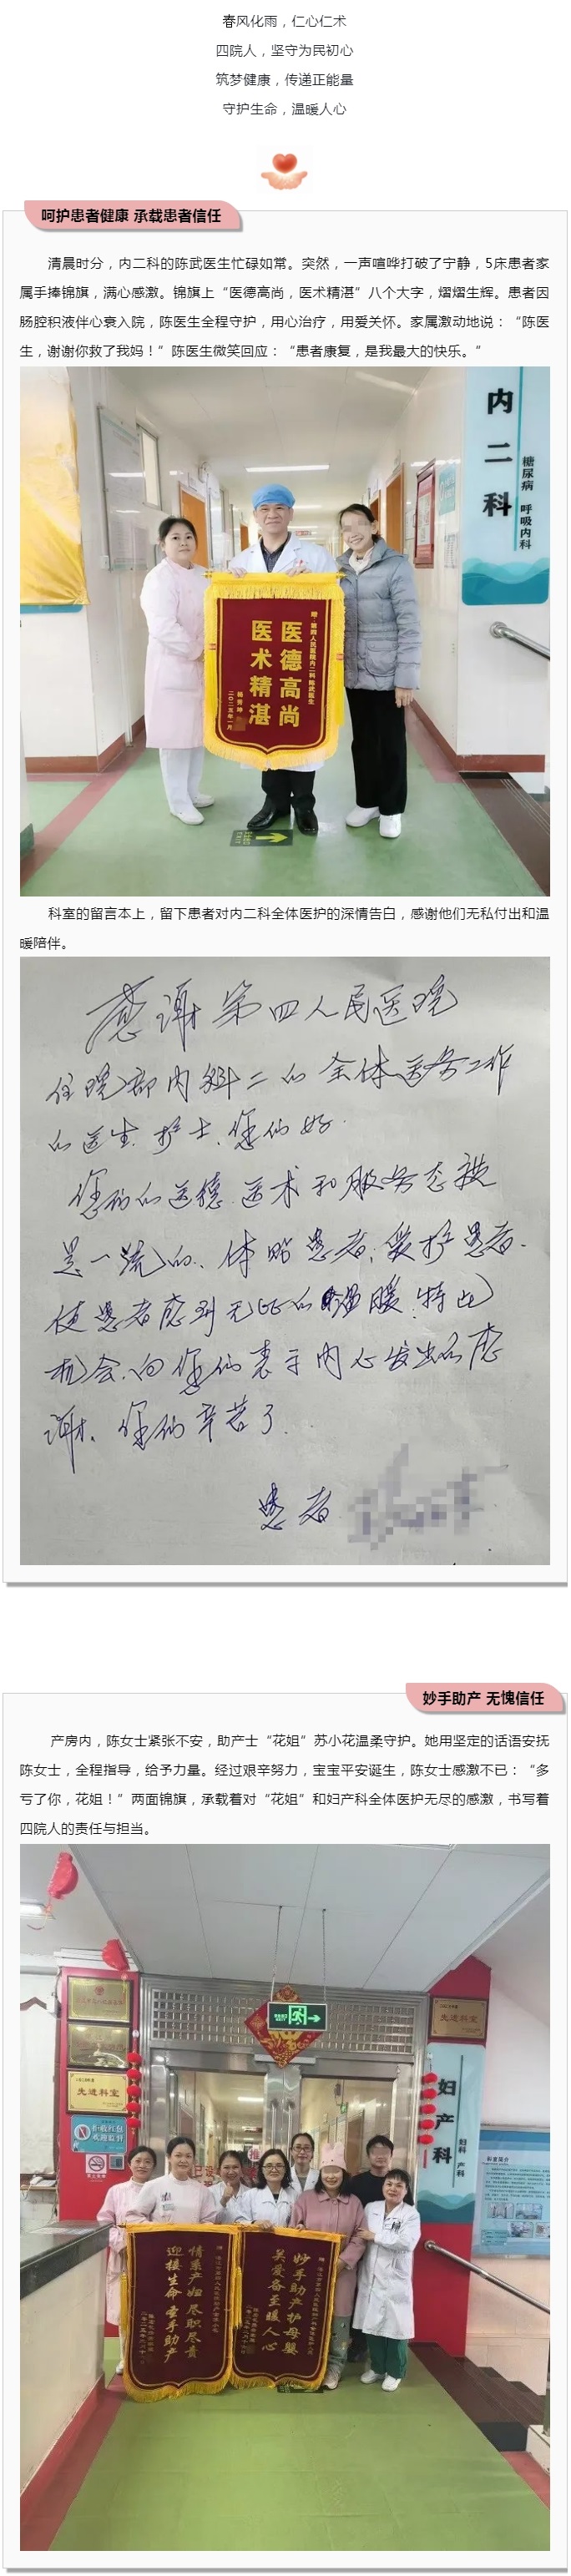 春风化雨，仁心仁术
四院人，坚守为民初心
筑梦健康，传递正能量
守护生命，温暖人心
呵护患者健康 承载患者信任
清晨时分，内二科的陈武医生忙碌如常。突然，一声喧哗打破了宁静，5床患者家
属手捧锦旗，满心感激。锦旗上“医德高尚，医术精湛”八个大字，熠熠生辉。患者因
肠腔积液伴心衰入院，陈医生全程守护，用心治疗，用爱关怀。家属激动地说：“陈医
生，谢谢你救了我妈！”陈医生微笑回应：“患者康复，是我最大的快乐。”
内二科
糖尿病 呼吸内科
赠：第四人民医院内二科 陈武医生
医德高尚
医术精湛
二〇二五年一月
科室的留言本上，留下患者对内二科全体医护的深情告白，感谢他们无私付出和温
暖陪伴。
感谢第四人民医院
住院部内科二的全体医务工作
的医生.护士.您们好.
您们的医德.医术和服务态度
是一流的、体贴患者,爱护患者.
使患者感到无比的温暖.特此
机会.向您们表示内心发出的感
谢、您们辛苦了..
患者
妙手助产 无愧信任
产房内，陈女士紧张不安，助产士“花姐”苏小花温柔守护。她用坚定的话语安抚
陈女士，全程指导，给予力量。经过艰辛努力，宝宝平安诞生，陈女士感激不已：“多
亏了你，花姐！”两面锦旗，承载着对“花姐”和妇产科全体医护无尽的感激，书写着
四院人的责任与担当。
先进科室
先进科室
拒收红包
欢迎监督
妇产科
妇科 产科
科室简介
情系产妇 尽职尽责
迎接生命 圣手助产
妙手助产护母婴
关爱备至暖人心